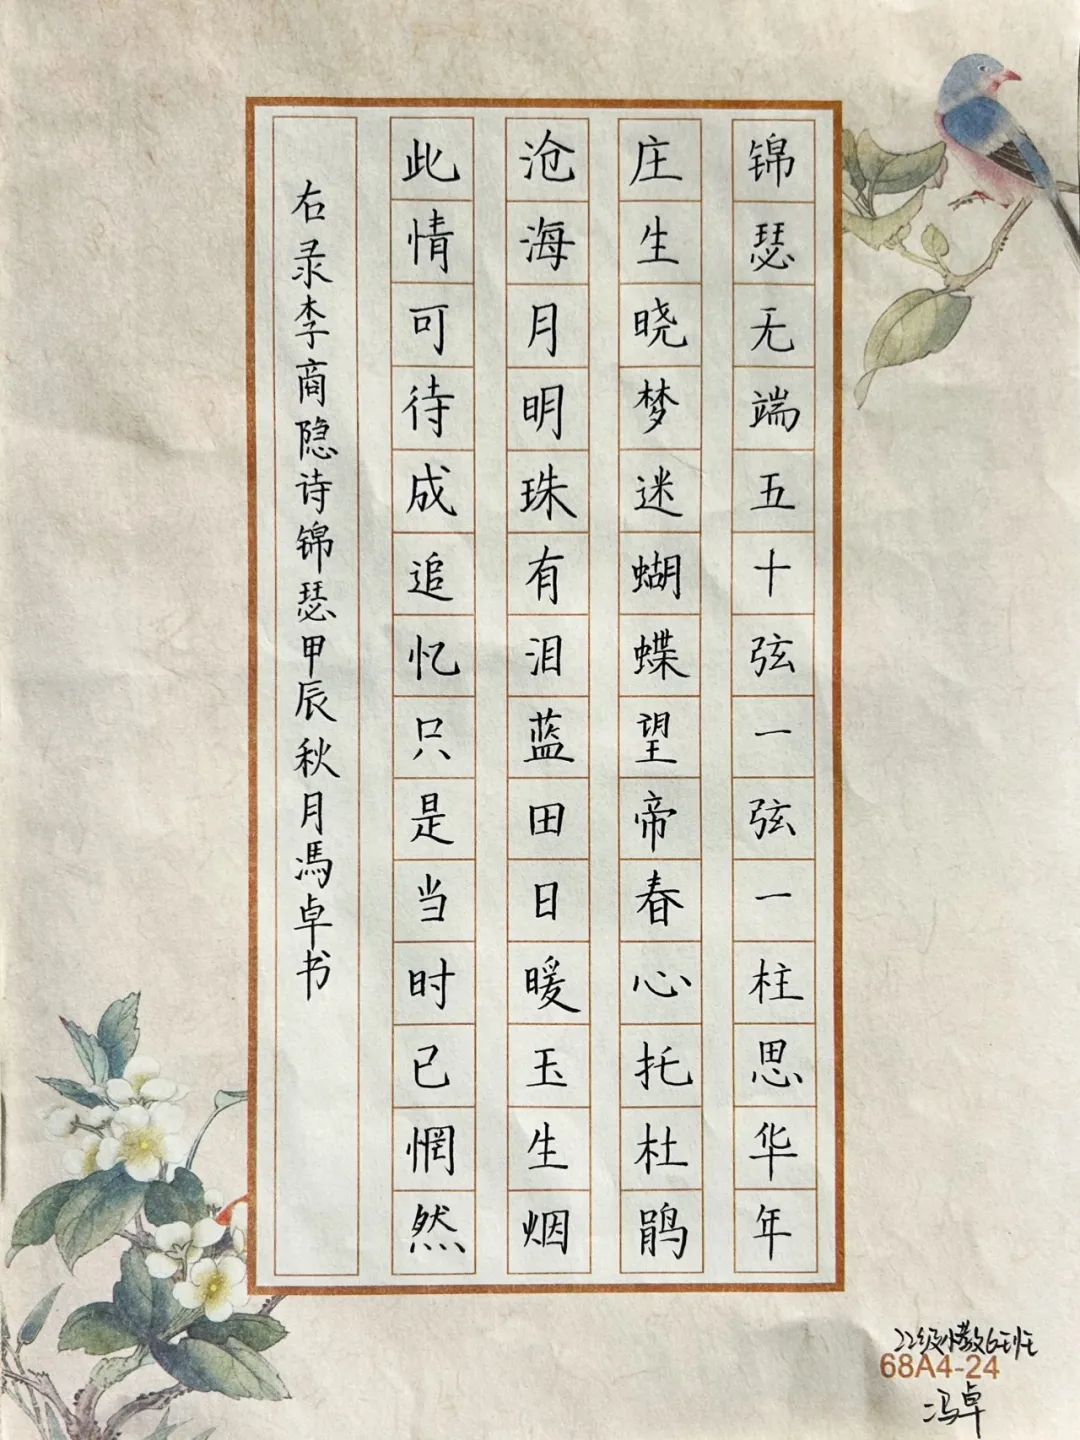 锦瑟无端五十弦一弦一柱思华年
庄生晓梦迷蝴蝶望帝春心托杜鹃
沧海月明珠有泪蓝田日暖玉生烟
此情可待成追忆只是当时已惘然
右录李商隐诗锦瑟甲辰秋月馮卓书
22级慬教6班
68A4-24
冯卓